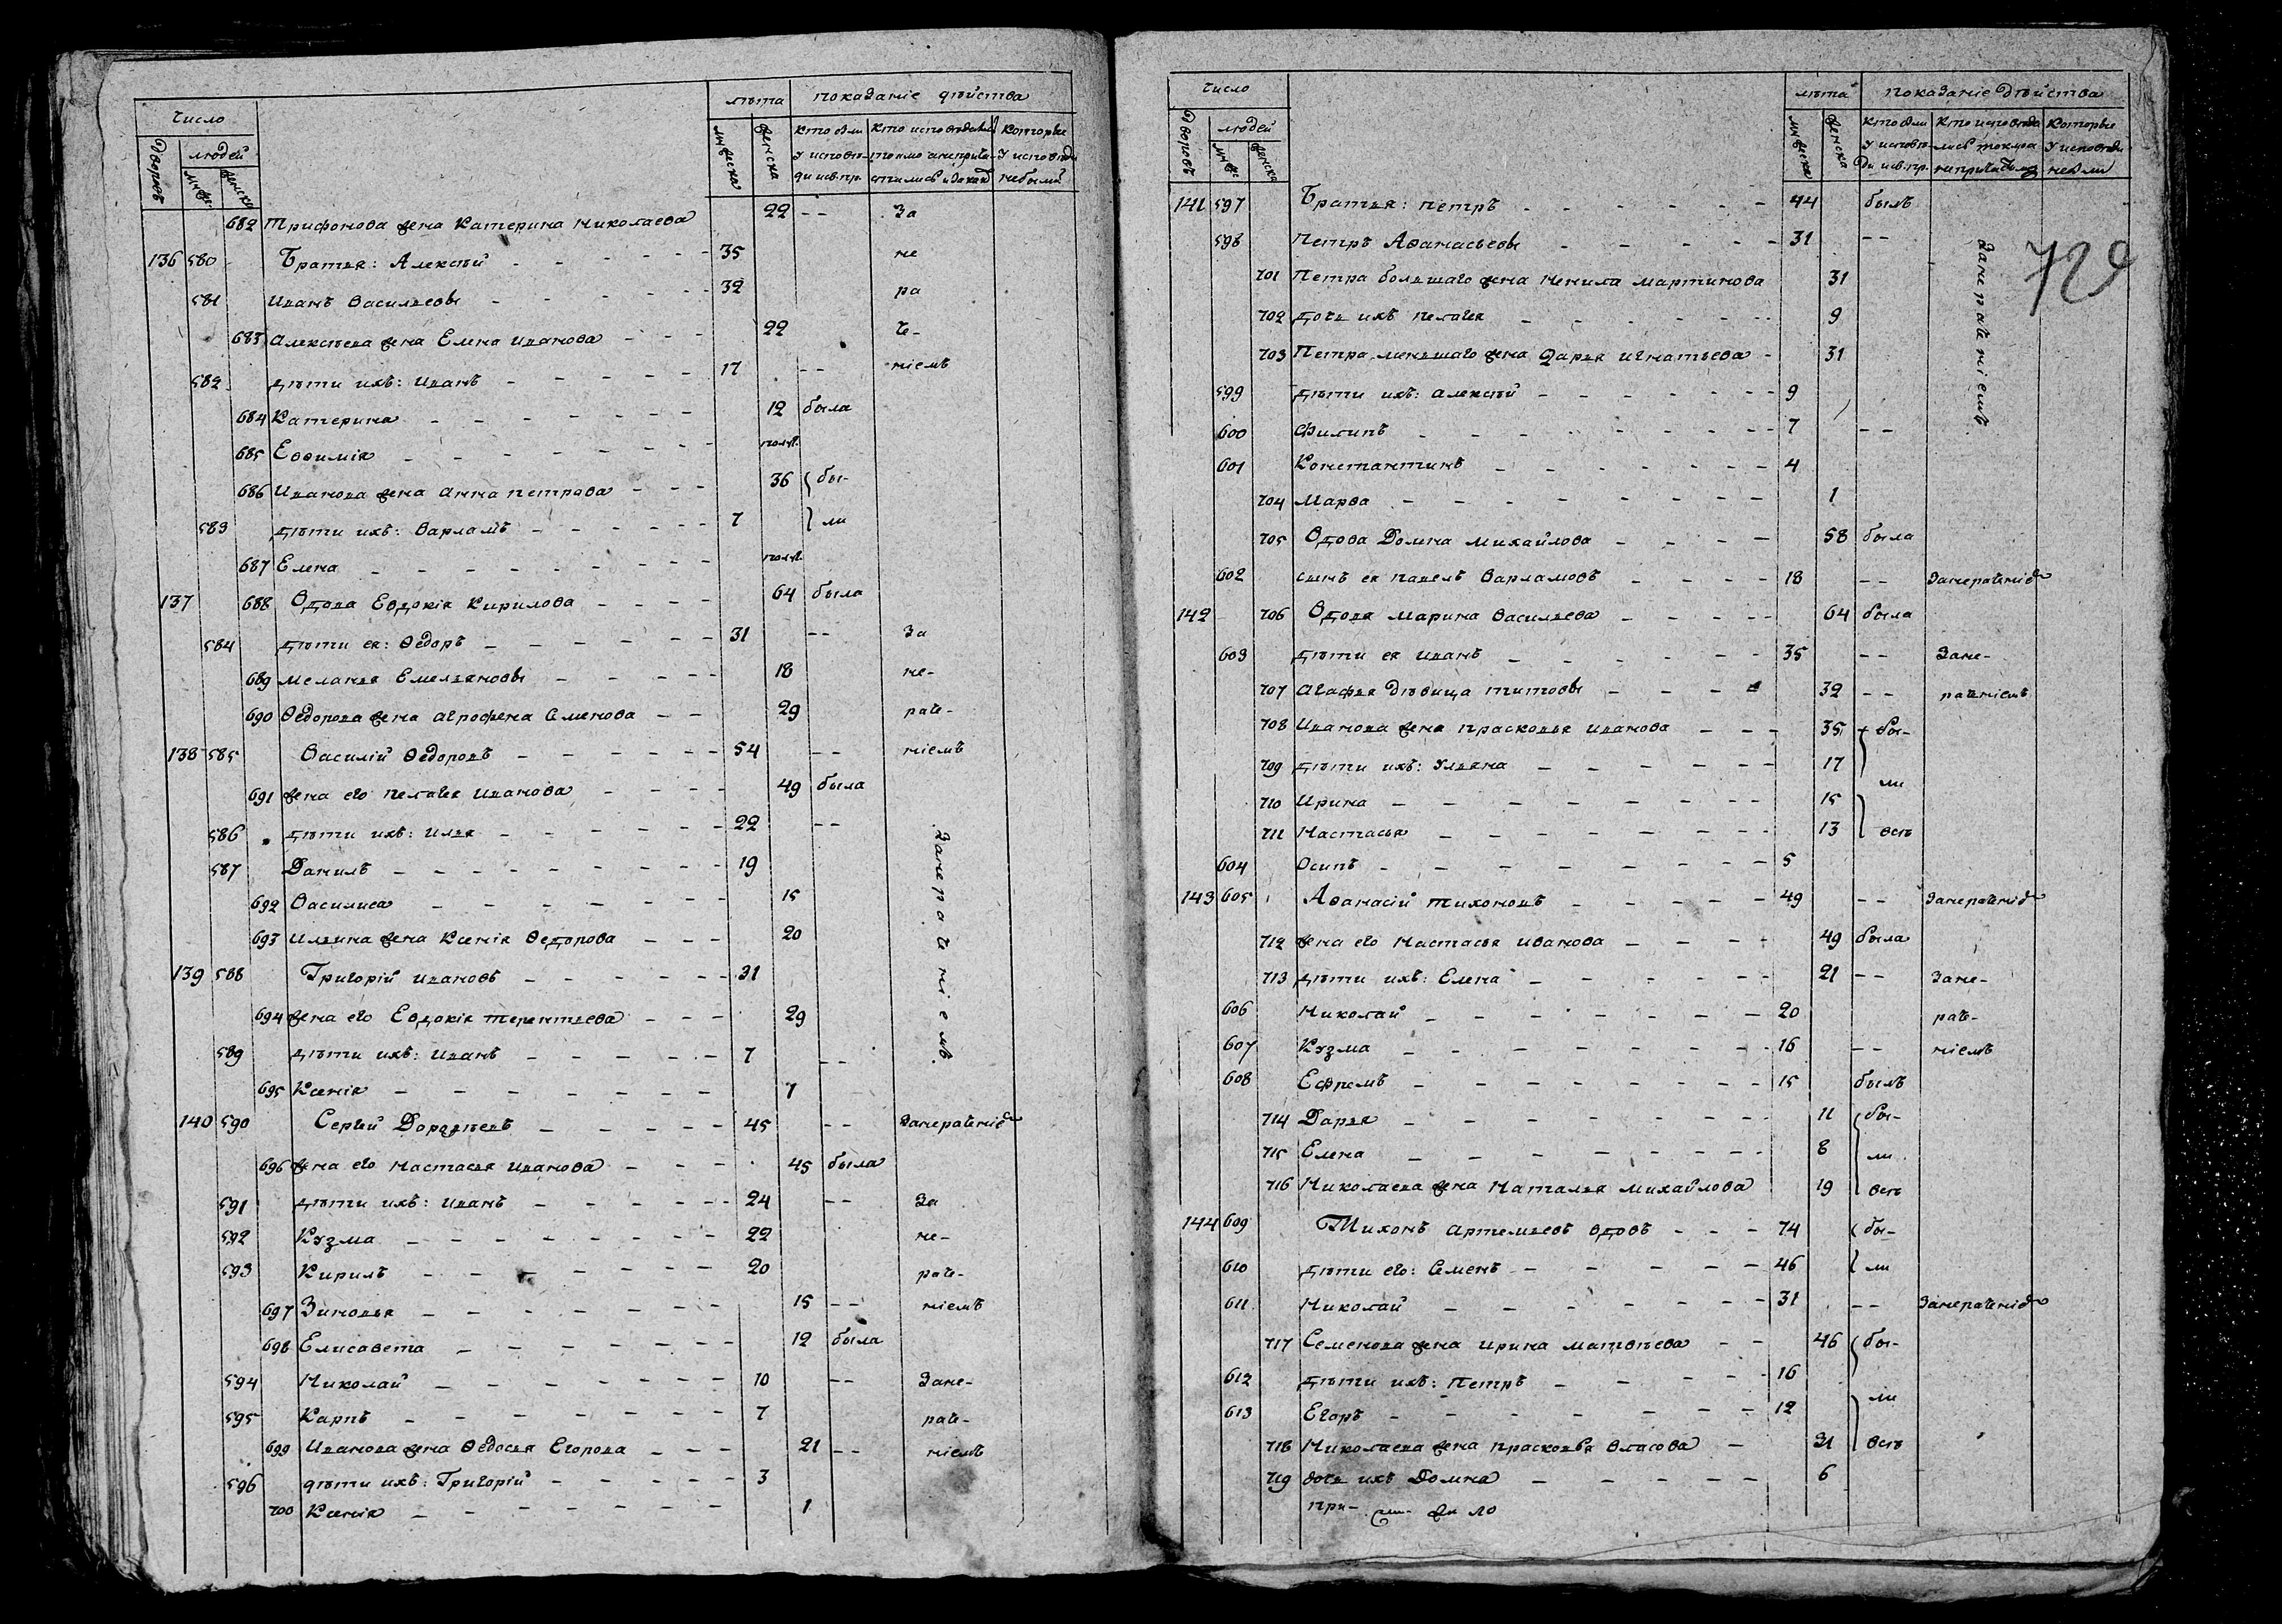 Число
лѣта
показаніе дѣйства
дворовъ
людей
мужеска
женска
мужеска
женска
кто были у исповѣди и св. пр.
кто исповѣдались токмо а не причастились и за какой
которые у исповѣди не были
682 Трифонова жена Катерина Николаева 22 -- За
136 580 Братья: Алексѣй 35 не
581 Иванъ Васильевы 32 ра
683 Алексѣева жена Елена Иванова 22 че-
582 дѣти ихъ: Иванъ 17 -- ніемъ
684 Катерина 12 была
685 Еѳимія полъ.
686 Иванова жена Анна Петрова 36 бы-
583 дѣти ихъ: Варламъ 7 ли
687 Елена полъ.
137 688 Вдова Евдокія Кирилова 64 была
584 дѣти ея: Ѳедоръ 31 -- За
689 Меланья Емельяновы 18 не-
690 Ѳедорова жена Агрофена Семенова 29 раче-
138 585 Василій Ѳедоровъ 54 -- ніемъ
691 жена его Пелагея Иванова 49 была
586 дѣти ихъ: Илья 22 --
587 Данилъ 19
692 Василиса 15
693 Ильина жена Ксенія Ѳедорова 20
Занераченіемъ
139 588 Григорій Ивановъ 31
694 жена его Евдокія Терентьева 29
589 дѣти ихъ: Иванъ 7 --
695 Ксенія 1
140 590 Сергѣй Дороѳѣевъ 45 -- Занераченіе
696 жена его Настасья Иванова 45 была
591 дѣти ихъ: Иванъ 24 -- За
592 Кузма 22 не-
593 Кирилъ 20 раче-
697 Зиновья 15 -- ніемъ
698 Елисавета 12 была
594 Николай 10 -- Зане-
595 Карпъ 7 раче-
699 Иванова жена Ѳедосья Егорова 21 -- ніемъ
596 дѣти ихъ: Григорій 3
700 Ксенія 1
Число
лѣта
показаніе дѣйства
дворовъ
людей
мужес
женска
мужеска
женска
кто были у исповѣди и св. пр.
кто исповѣдались токмо а не причастились
которые у исповѣди не были
141 597 Братья: Петръ 44 былъ
598 Петръ Аѳанасьевы 31 --
72
701 Петра большаго жена Ненила Мартинова 31
702 дочь ихъ Пелагея 9
703 Петра меньшаго жена Дарья Игнатьева 31
Занераченіемъ
599 дѣти ихъ: Алексѣй 9
600 Филипъ 7 --
601 Константинъ 4
704 Марѳа 1
705 Вдова Домна Михайлова 58 была
602 сынъ ея Павелъ Варламовъ 18 -- Занераченіе
142 706 Вдова Марина Васильева 64 была
603 дѣти ея Иванъ 35 -- Зане-
707 Агафья дѣвица Титовы 32 -- раченіемъ
708 Иванова жена Прасковья Иванова 35 бы-
709 дѣти ихъ: Ульяна 17 ли
710 Ирина 15
711 Настасья 13 всѣ
604 Осипъ 5
143 605 Аѳанасій Тихоновъ 49 -- Занераченіе
712 жена его Настасья Иванова 49 была
713 дѣти ихъ: Елена 21 -- Зане-
606 Николай 20 раче-
607 Кузма 16 -- ніемъ
608 Ефремъ 15 былъ
714 Дарья 11 бы-
715 Елена 8 ли
716 Николаева жена Наталья Михайлова 19 всѣ
144 609 Тихонъ Артемьевъ вдовъ 74 бы-
610 дѣти его: Семенъ 46 ли
611 Николай 31 -- Занераченіе
717 Семенова жена Ирина Матвѣева 46 бы-
612 дѣти ихъ: Петръ 16
613 Егоръ 12 ли
718 Николаева жена Прасковья Власова 31 всѣ
719 дочь ихъ Домна 6